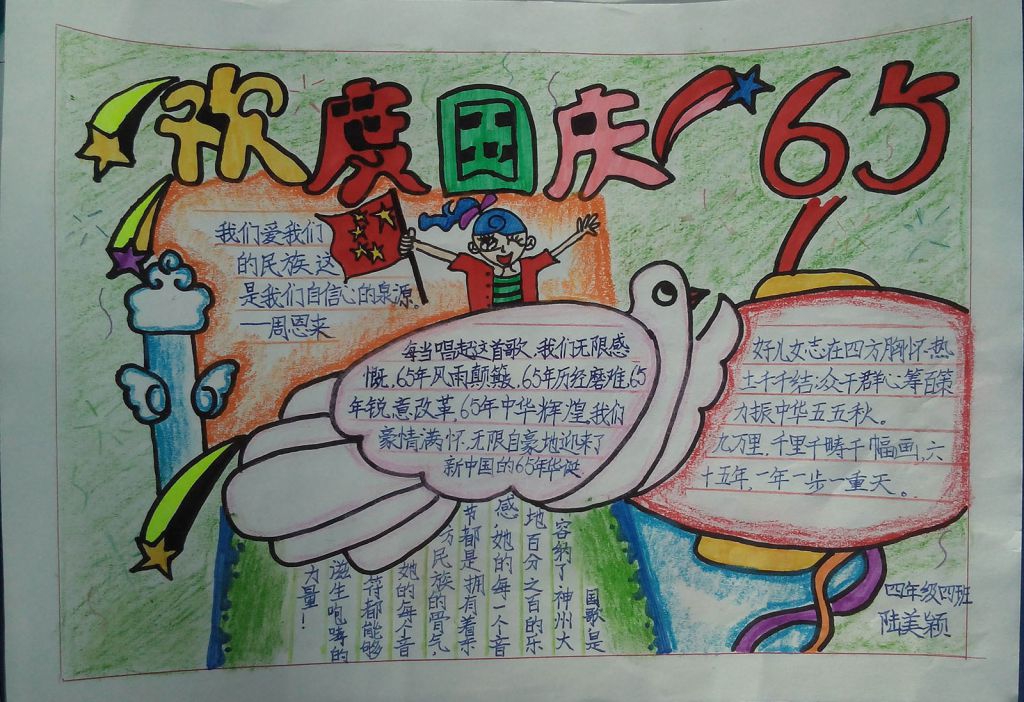 欢度国庆65
我们爱我们
的民族,这
是我们自信心的泉源。
——周恩来
每当唱起这首歌,我们无限感
慨,65年风雨颠簸,65年历经磨难,65
年锐意改革,65年中华辉煌。我们
豪情满怀,无限自豪地迎来了
新中国的65年华诞
好儿女志在四方胸怀,热
土千千结;众千群心筹百策
力振中华五五秋。
九万里,千里千畴千幅画,六
十五年,一年一步一重天。
国歌是
容纳了神州大
地百分之百的乐
感,她的每一个音
节都是拥有着亲
方民族的骨气,
她的每个音
符都能够
滋生咆哮的
力量!
四年级四班
陆美颖